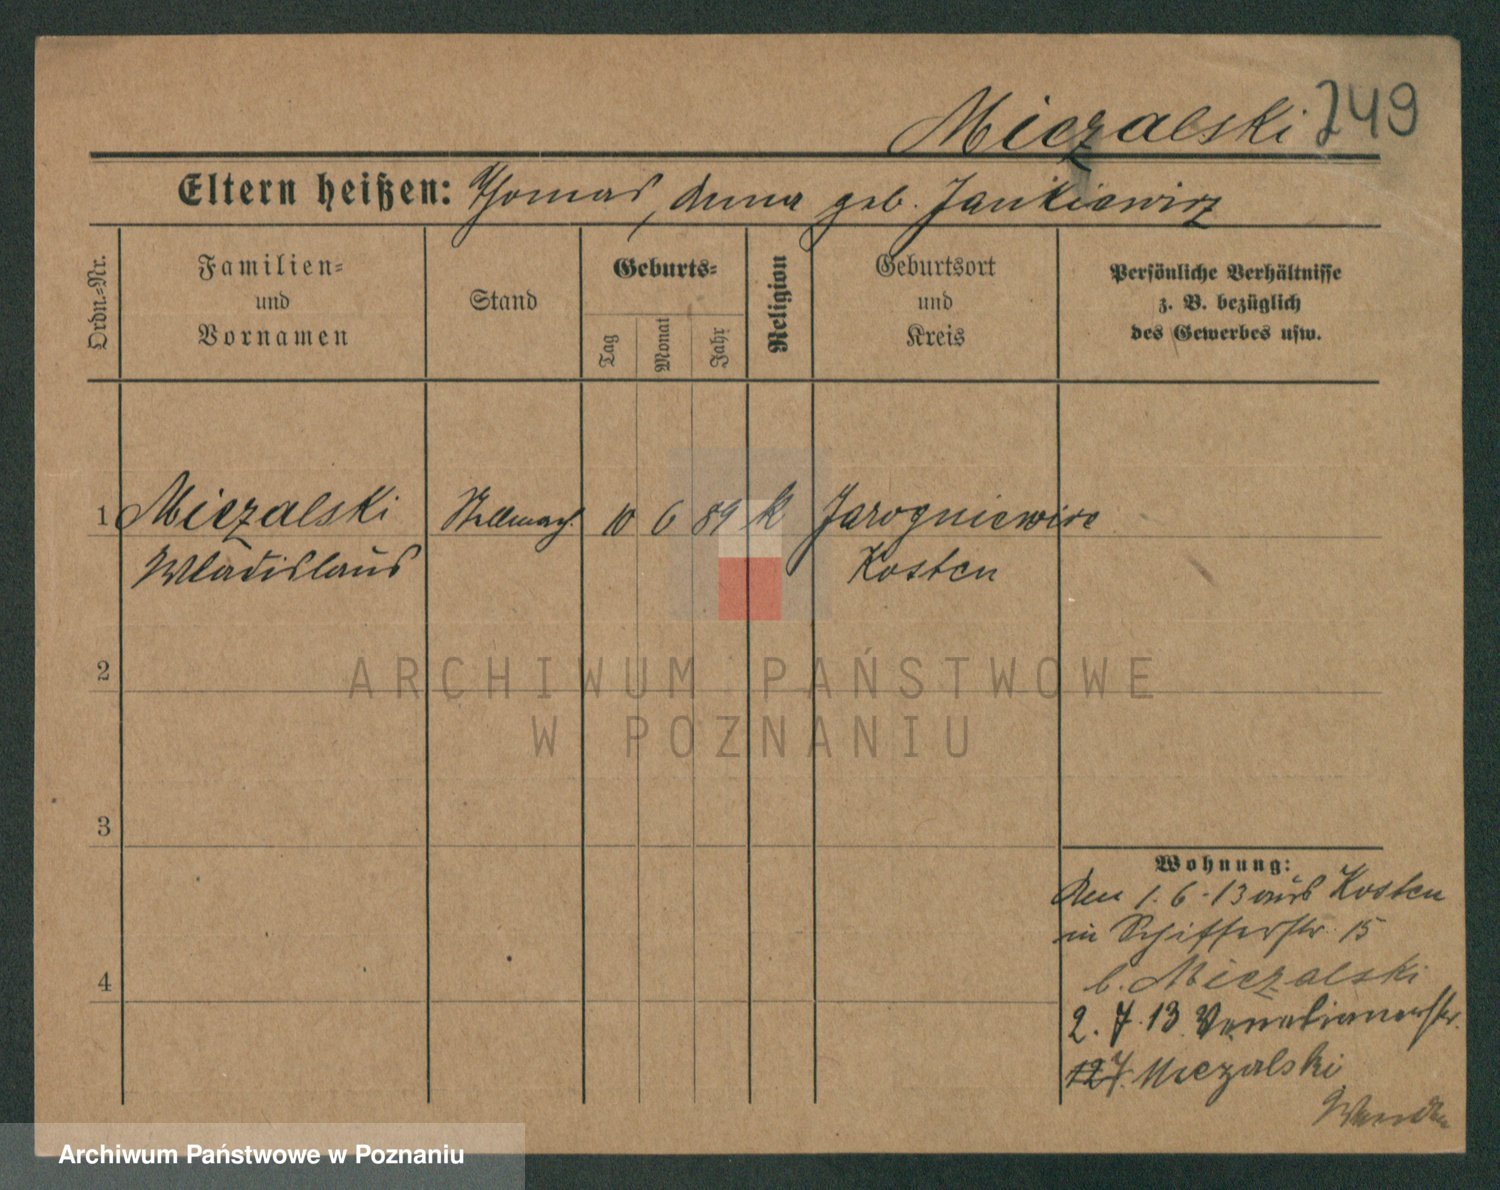 Miczalski 249
Eltern heißen: Thomas, Anna geb. Jankiewicz
Ordn.-Nr.
Familien-
und
Vornamen
Stand
Geburts-
Tag
Monat
Jahr
Religion
Geburtsort
und
Kreis
Persönliche Verhältnisse
z. B. bezüglich
des Gewerbes usw.
1 Miczalski Stellmach. 10 6 89 k Jarogniewice
Wladislaus Kosten
2
3
4
Wohnung:
Den 1.6.13 aus Kosten
in Schifferstr. 15
b. Miczalski
2.7.13 Venetianerstr.
Miczalski
ARCHIWUM PAŃSTWOWE
W POZNANIU
Archiwum Państwowe w Poznaniu